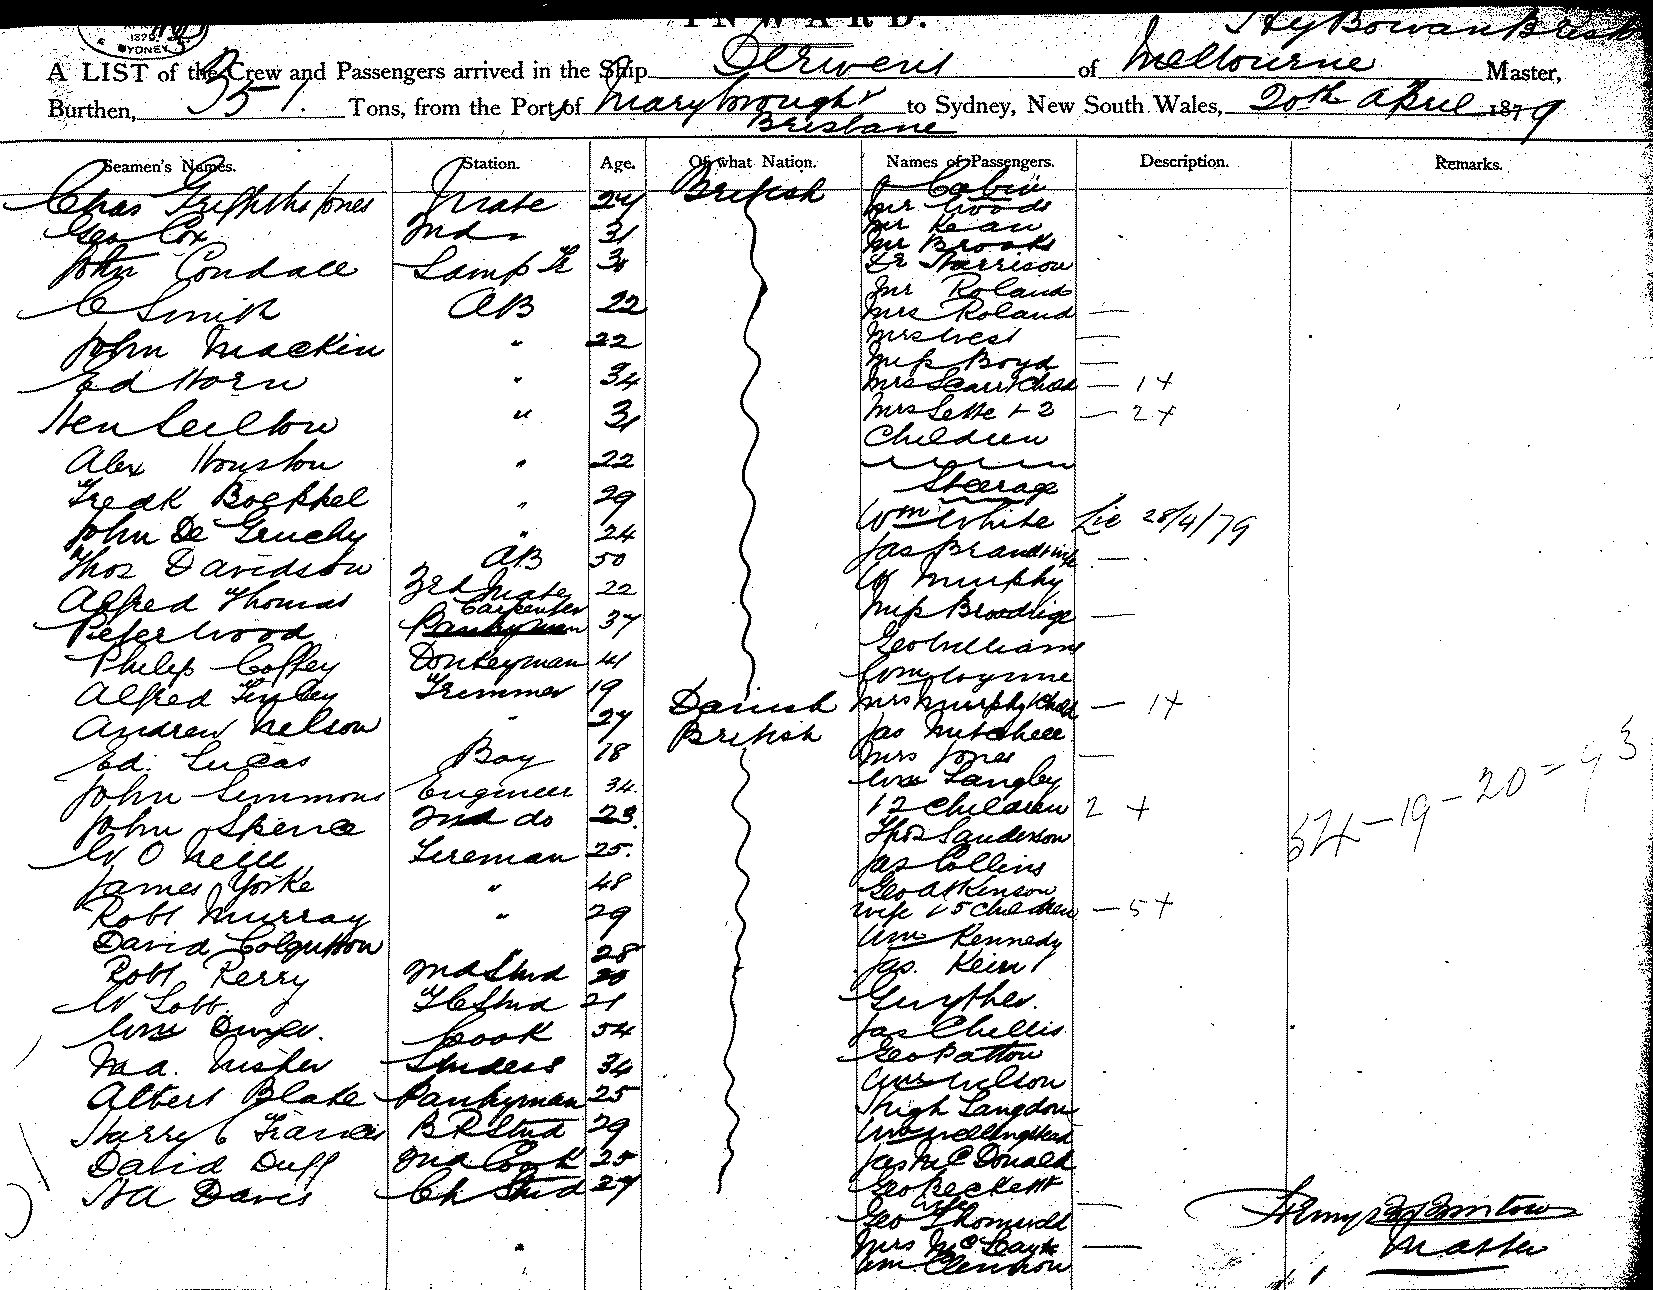 INWARD.
SYDNEY
Hy Bowan Brisb
A LIST of the Crew and Passengers arrived in the Ship Derwent of Melbourne Master,
Burthen, 351. Tons, from the Port of Maryborough & to Sydney, New South Wales, 20th April 1879
Brisbane
Seamen's Names. Station. Age. Of what Nation. Names of Passengers. Description. Remarks.
Cabin
Chas Griffiths Jones Mate 24 British Mr Woods
Geo Cox 2nd 31 Mr Kean
Mr Brooks
John Condace Lamp Tr 31 Dr Harrison
Mr Roland
C Smith AB 22 Mrs Roland —
Mrs West —
John Mackin " 22 Miss Boyd —
Ed Horn " 34 Mrs Scarr & Child — 1 +
Hen 31 Mrs Sette + 2 — 2 +
Children
Alex Houston " 22
Steerage
Fredk Boekkel " 29
Wm White Lie 28/4/79
John De Gruchy " 24
Thos Davidson AB 50 Jas —
Alfred Thomas 3rd Mate 22 W Murphy
Carpenter
Peter Wood 37 Miss Broodrige —
Geo Williams
Philip Coffey Donkeyman 41 Wm Coyne
Alfred Finley Trimmer 19 Mrs Murphy & Child — 1 +
Andrew Nelson " 27 Danish Jas Mitchell
British Mrs Jones —
Ed. Lucas Boy 18 Wm Langley
John Simmons Engineer 34 + 2 Children 2 +
John Spence 2nd do 23. Thos Sanderson
W O Neill Fireman 25. Jas Collins
James Yorke " 48 Geo Atkinson
Robt Murray " 29 wife & 5 Children — 5 +
David Colquhoun " 28 Wm Kennedy
Robt Perry 2nd Stwd 20 Jas. Keirl
W Lobb F C Stwd 21 Guyther.
Wm Dwyer. Cook 54 Jas Chellis
Geo Patton
Ma. Fisher Studess 34 Wm Wilson
Albert Blake Pantryman 25 Hugh Langdon
Harry C Francis B R Stwd 29
David Duff 2nd Cook 25 Jas McDonald
H A Davis Ch Stwd 27 Geo Beckett
wife —
Geo
Mrs —
Wm
54 – 19 – 20 = 93
Master